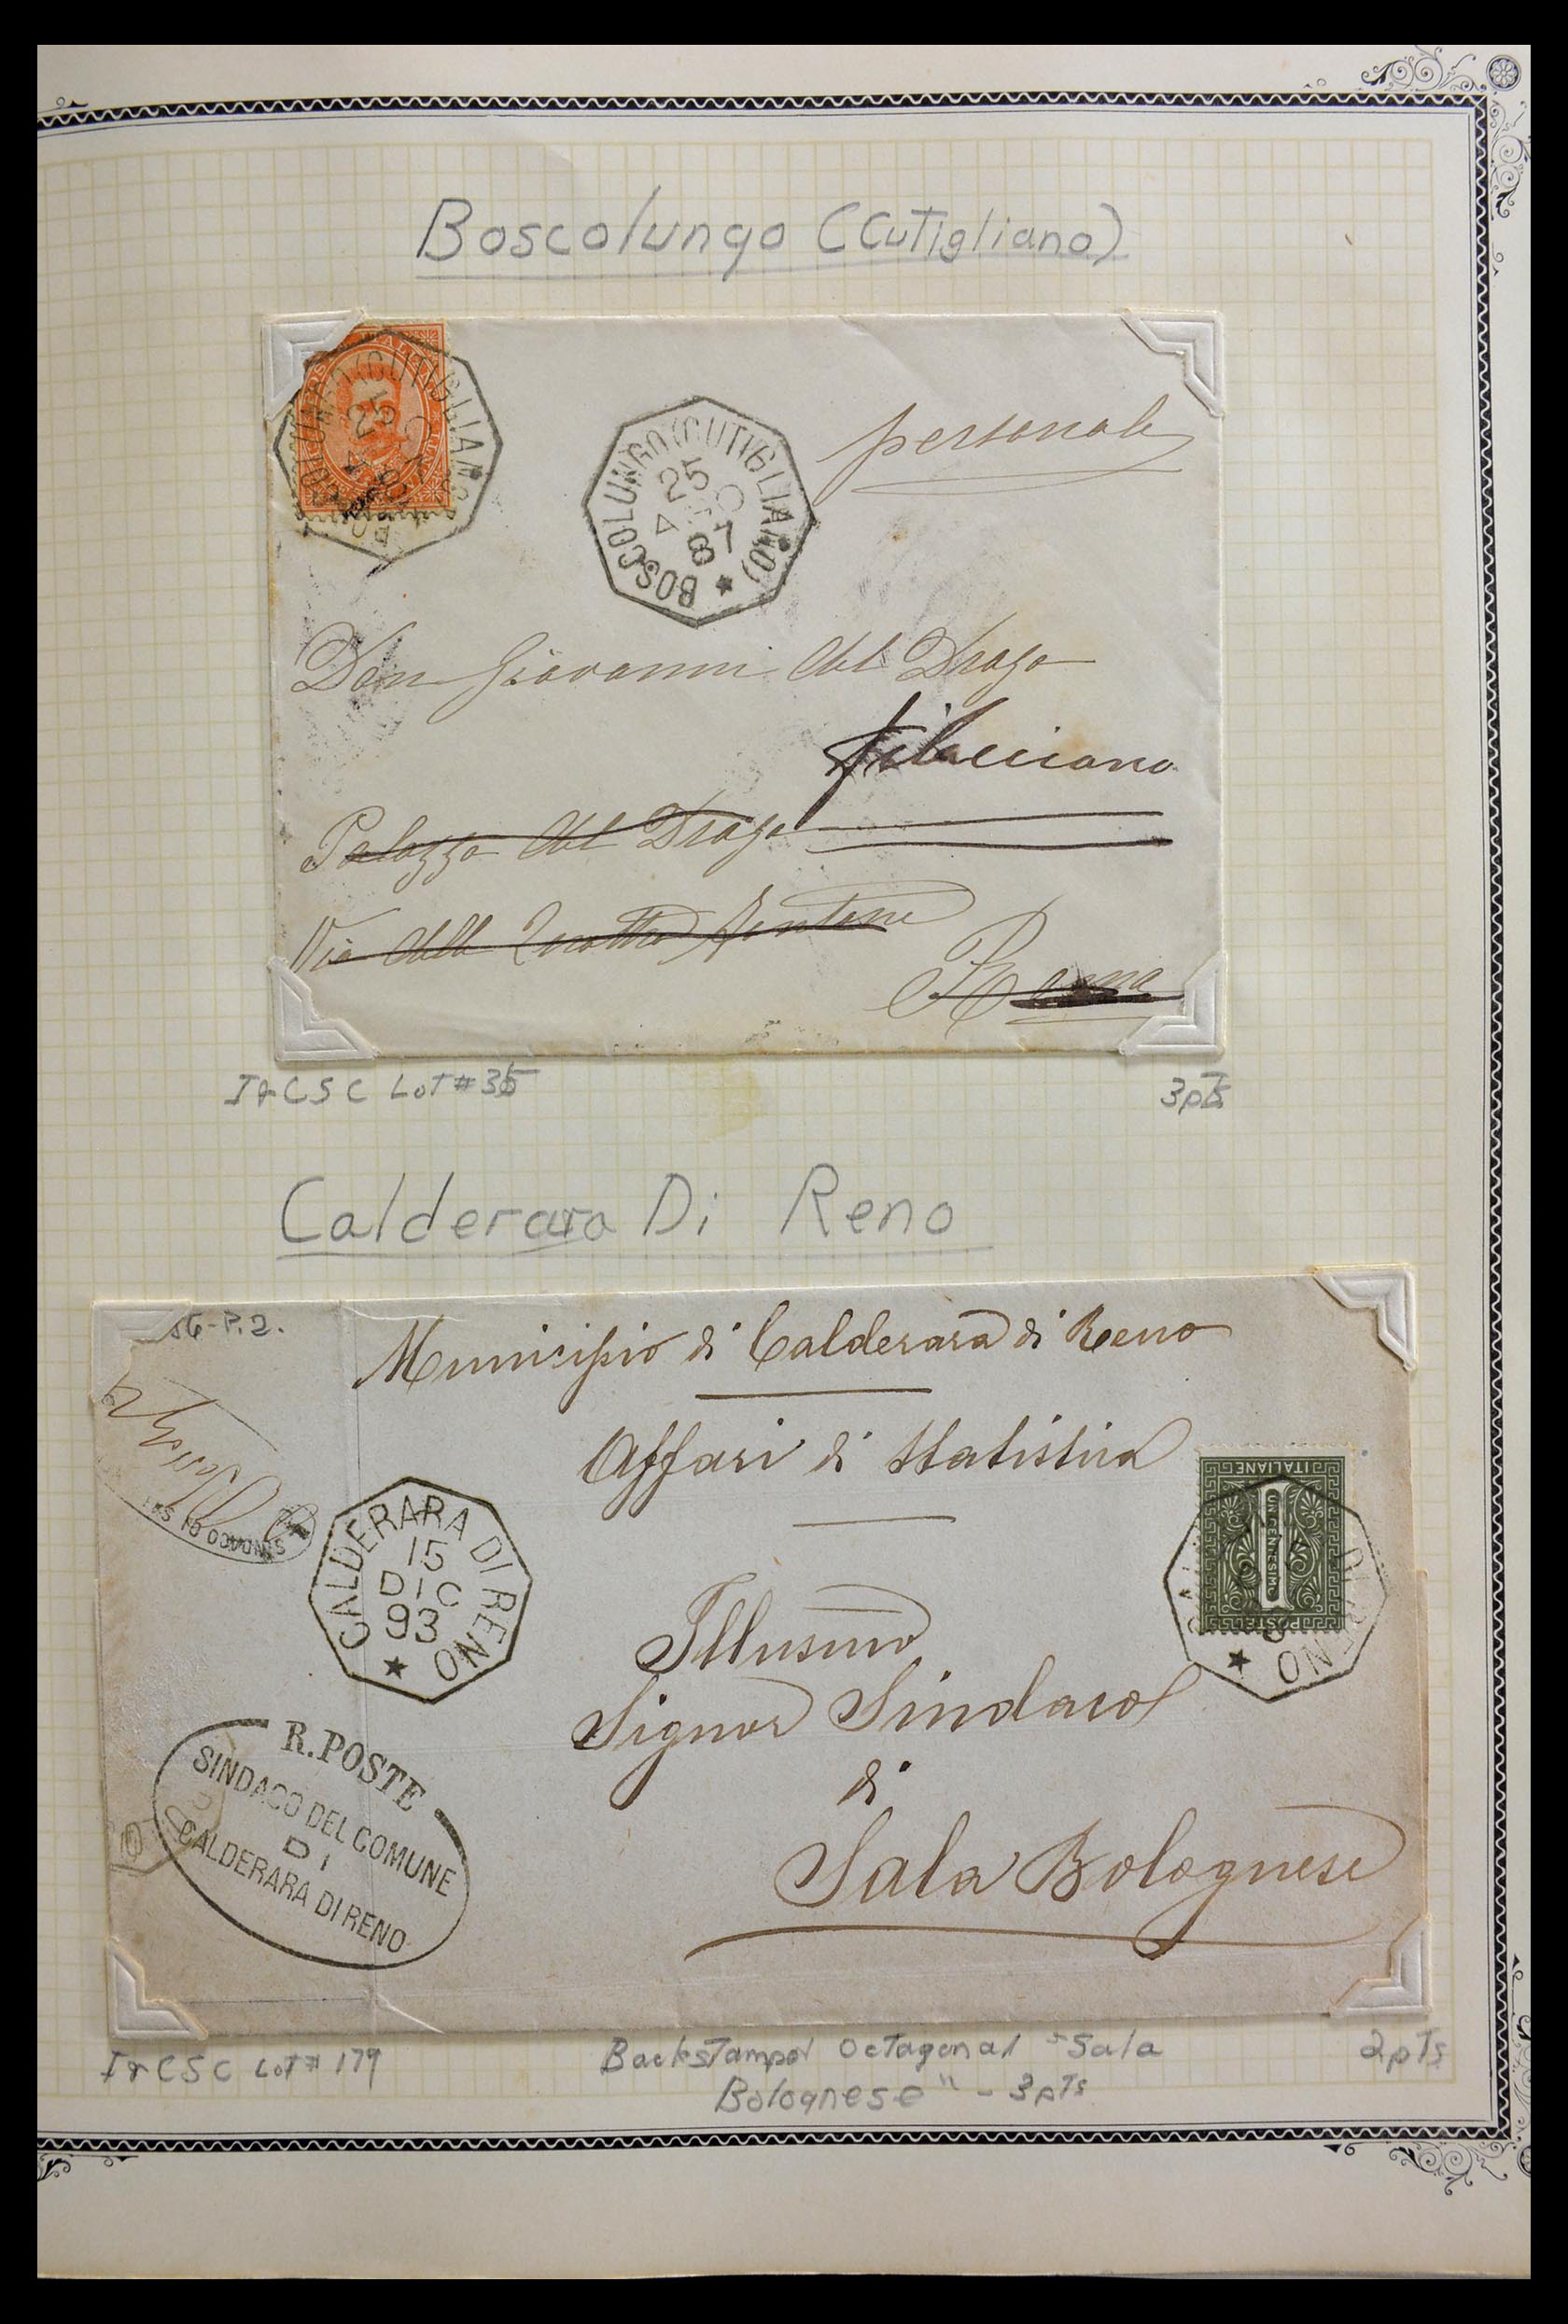 Boscolungo (Cutigliano)
BOSCOLUNGO (CUTIGLIANO)
25
87
personale
Don Giovanni del Drago
Filacciano
Palazzo del Drago
Via delle Quattro Fontane
Roma
ItCSC Lot # 35
3pts
Calderara Di Reno
56-P.2.
Municipio di Calderara di Reno
Affari di Statistica
SINDACO DI
CALDERARA DI RENO
15
DIC
93
POSTE ITALIANE
UN CENTESIMO
1
DI RENO
Illusmo
Signor Sindaco
di
Sala Bolognese
R. POSTE
SINDACO DEL COMUNE
DI
CALDERARA DI RENO
ItCSC Lot # 179
Backstamped Octagonal "Sala
Bolognese" - 3pts
2pts